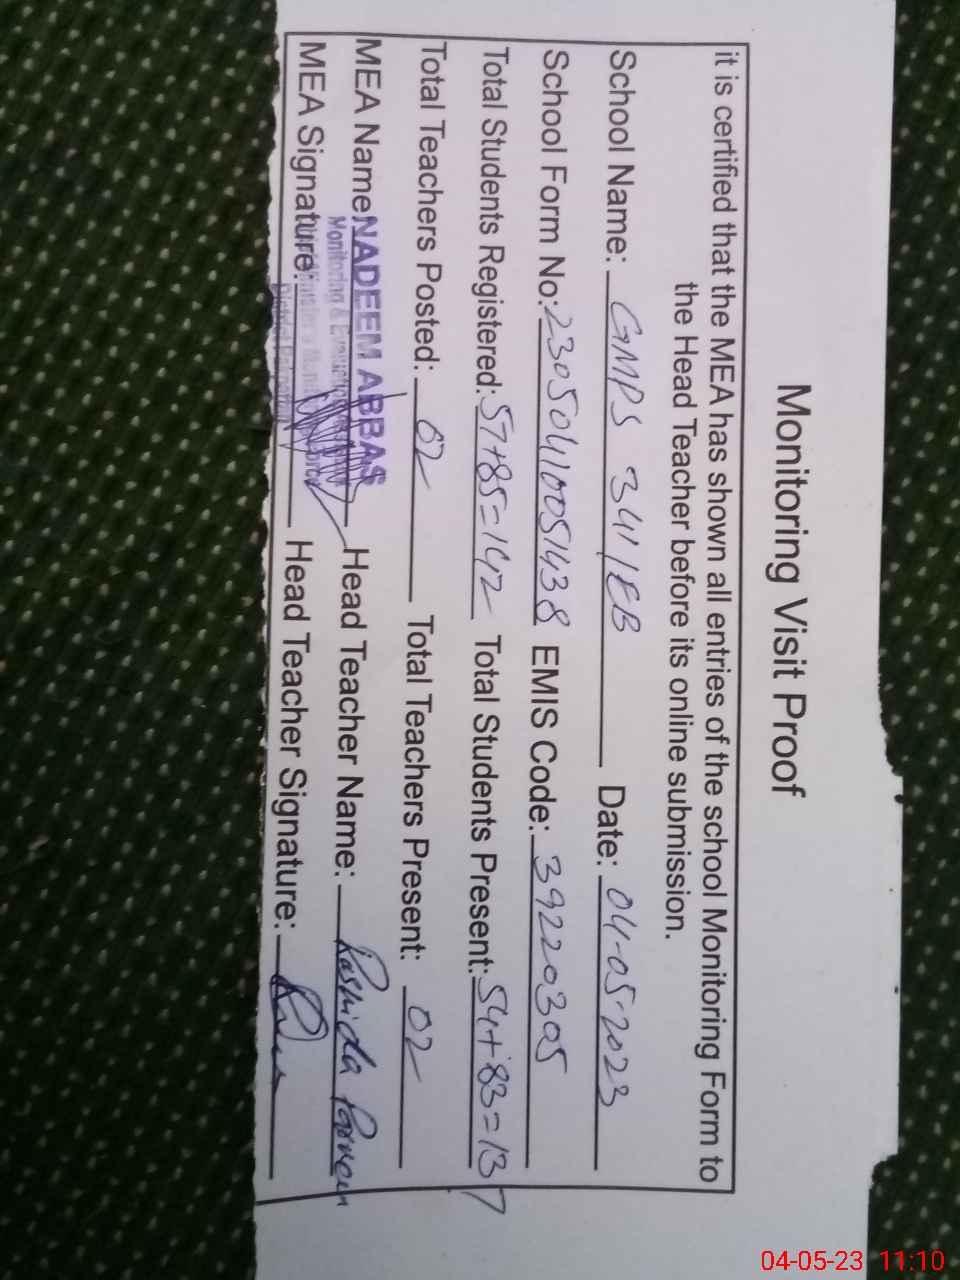 Monitoring Visit Proof
it is certified that the MEA has shown all entries of the school Monitoring Form to
the Head Teacher before its online submission.
School Name: GMPS 341/EB Date: 04-05-2023
School Form No: 230504110051438 EMIS Code: 39220305
Total Students Registered: 57+85=142 Total Students Present: 54+83=137
Total Teachers Posted: 02 Total Teachers Present: 02
MEA Name NADEEM ABBAS Head Teacher Name: Rashida Parveen
Monitoring & Evaluation
MEA Signature: Head Teacher Signature:
04-05-23 11:10